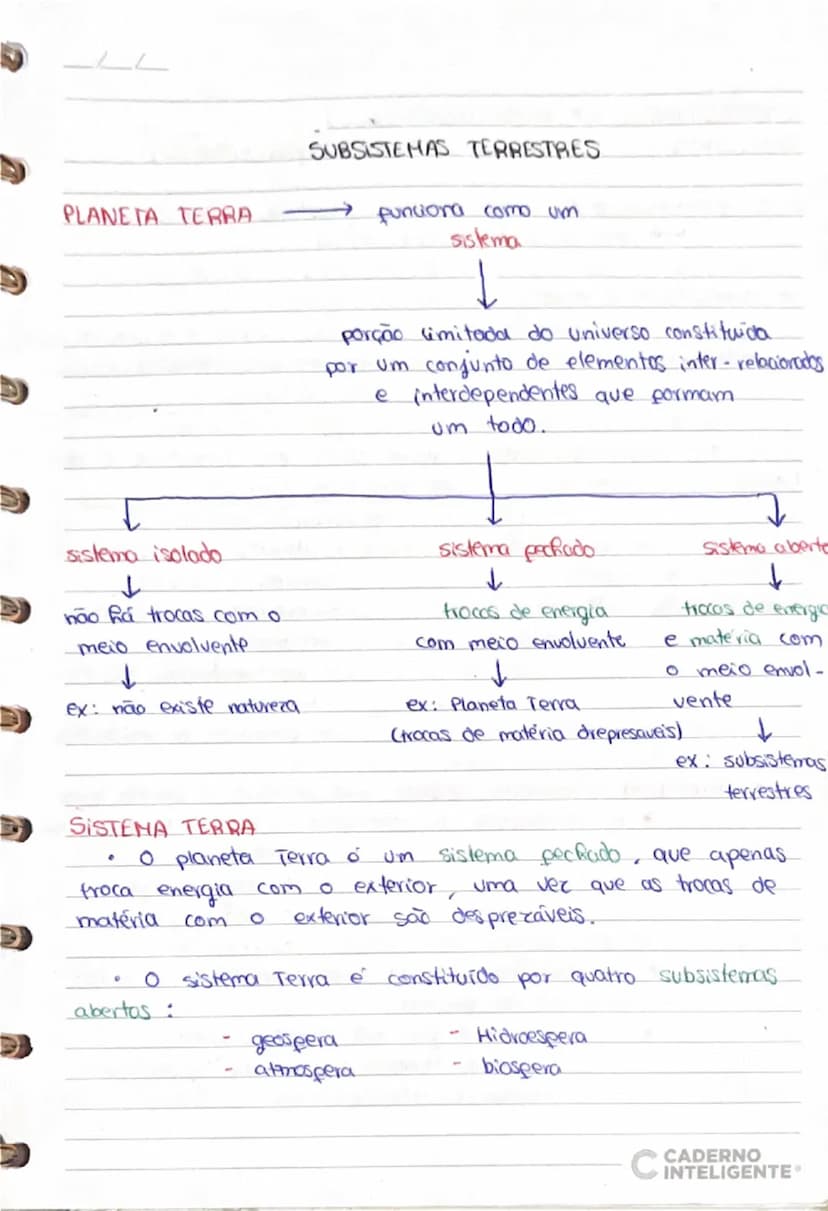 SUBSISTEMAS TERRESTRES
PLANETA TERRA → funciona como um
sistema
porção limitada do universo constituída
por um conjunto de elementos inter-relacionados
e interdependentes que formam
um todo.
sistema isolado
sistema fechado
sistema aberto
não há trocas com o
meio envolvente
ex: não existe natureza
trocas de energia
com meio envolvente
ex: Planeta Terra
(trocas de matéria drepresaveis)
trocas de energia
e matéria com
o meio envol-
vente
ex: subsistemas
terrestres
SISTEMA TERRA
• O planeta Terra é um sistema fechado, que apenas
troca energia com o exterior, uma vez que as trocas de
matéria com o exterior são desprezáveis.
• O sistema Terra é constituído por quatro subsistemas
abertos:
- geosfera - Hidroesfera
- atmosfera - biosfera
CADERNO
INTELIGENTE®